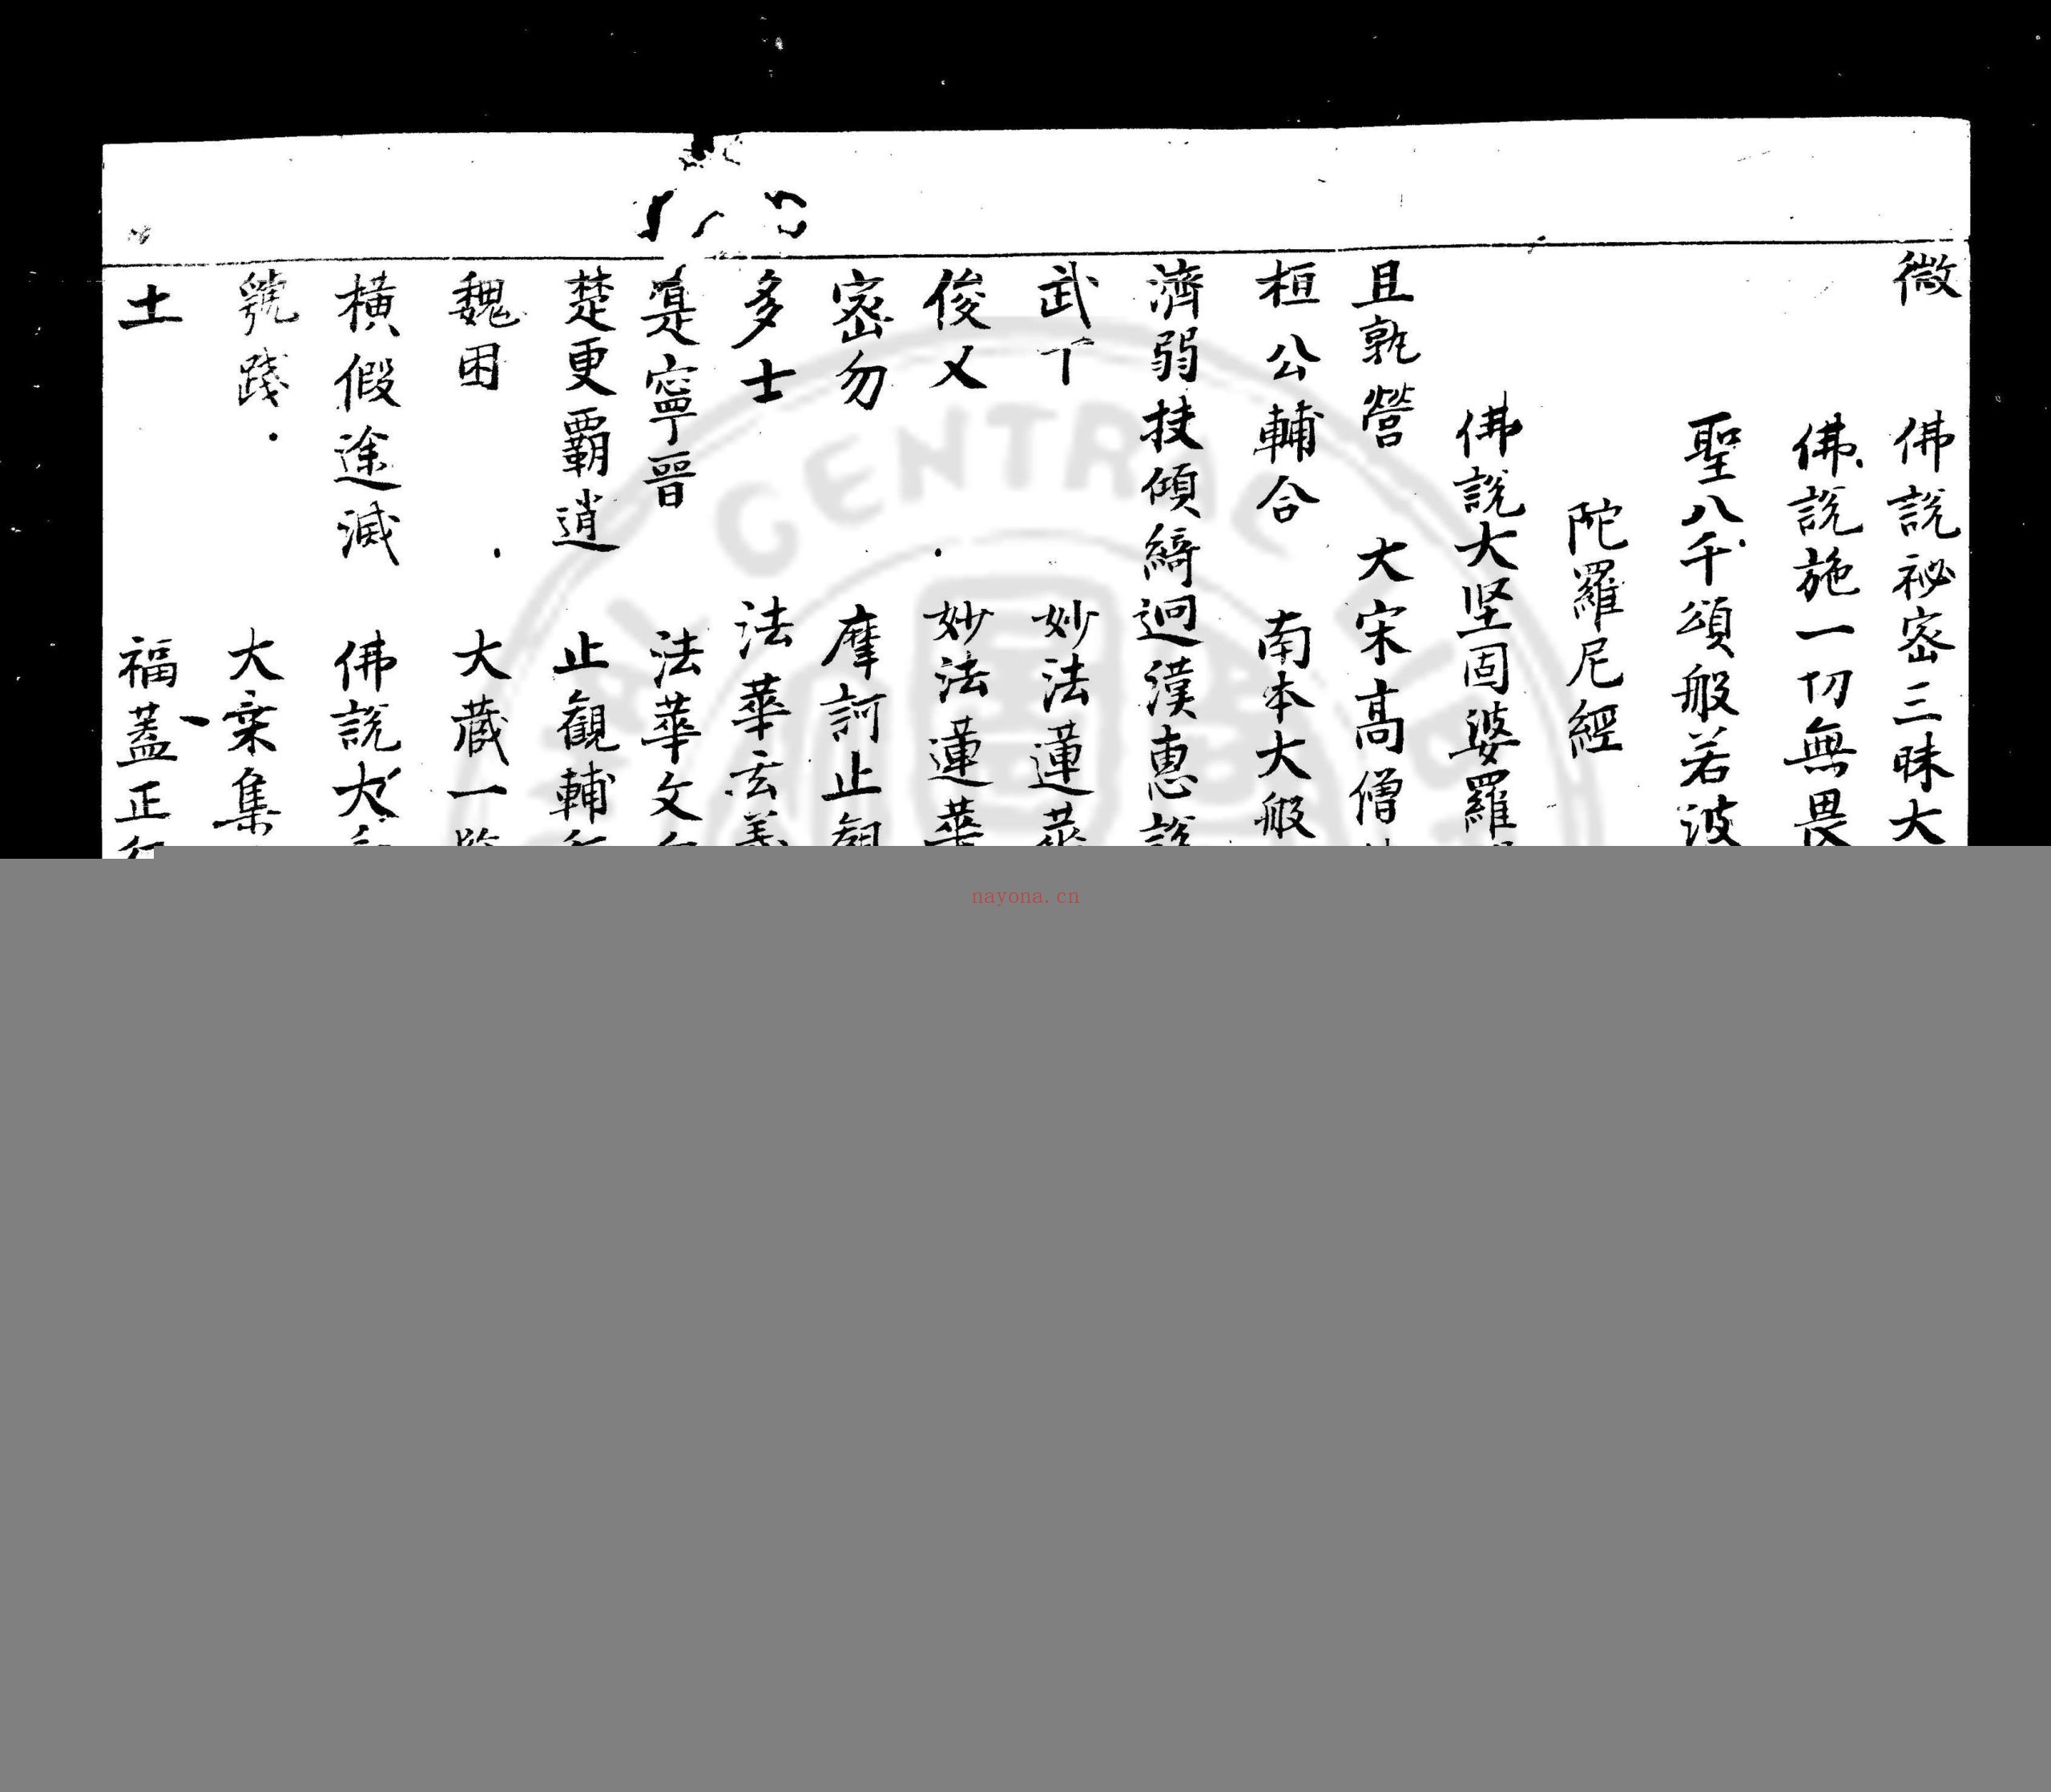 微　佛說祕密三昧大
佛說施一切無畏
聖八千頌般若波
陀羅尼經
佛說大坚固婆羅
且孰營　大宋高僧
桓公輔合　南本大般
濟弱扶傾綺迴漢惠說
武丁　妙法蓮華
俊乂　妙法蓮華
密勿　摩訶止觀
多士　法華玄義
寔寧晉　法華文句
楚更霸逍　止觀輔行
魏困　大藏一
橫假途滅　佛說大
虢踐　大乗集
土　福蓋正行
GENTRAL
nayona.cn